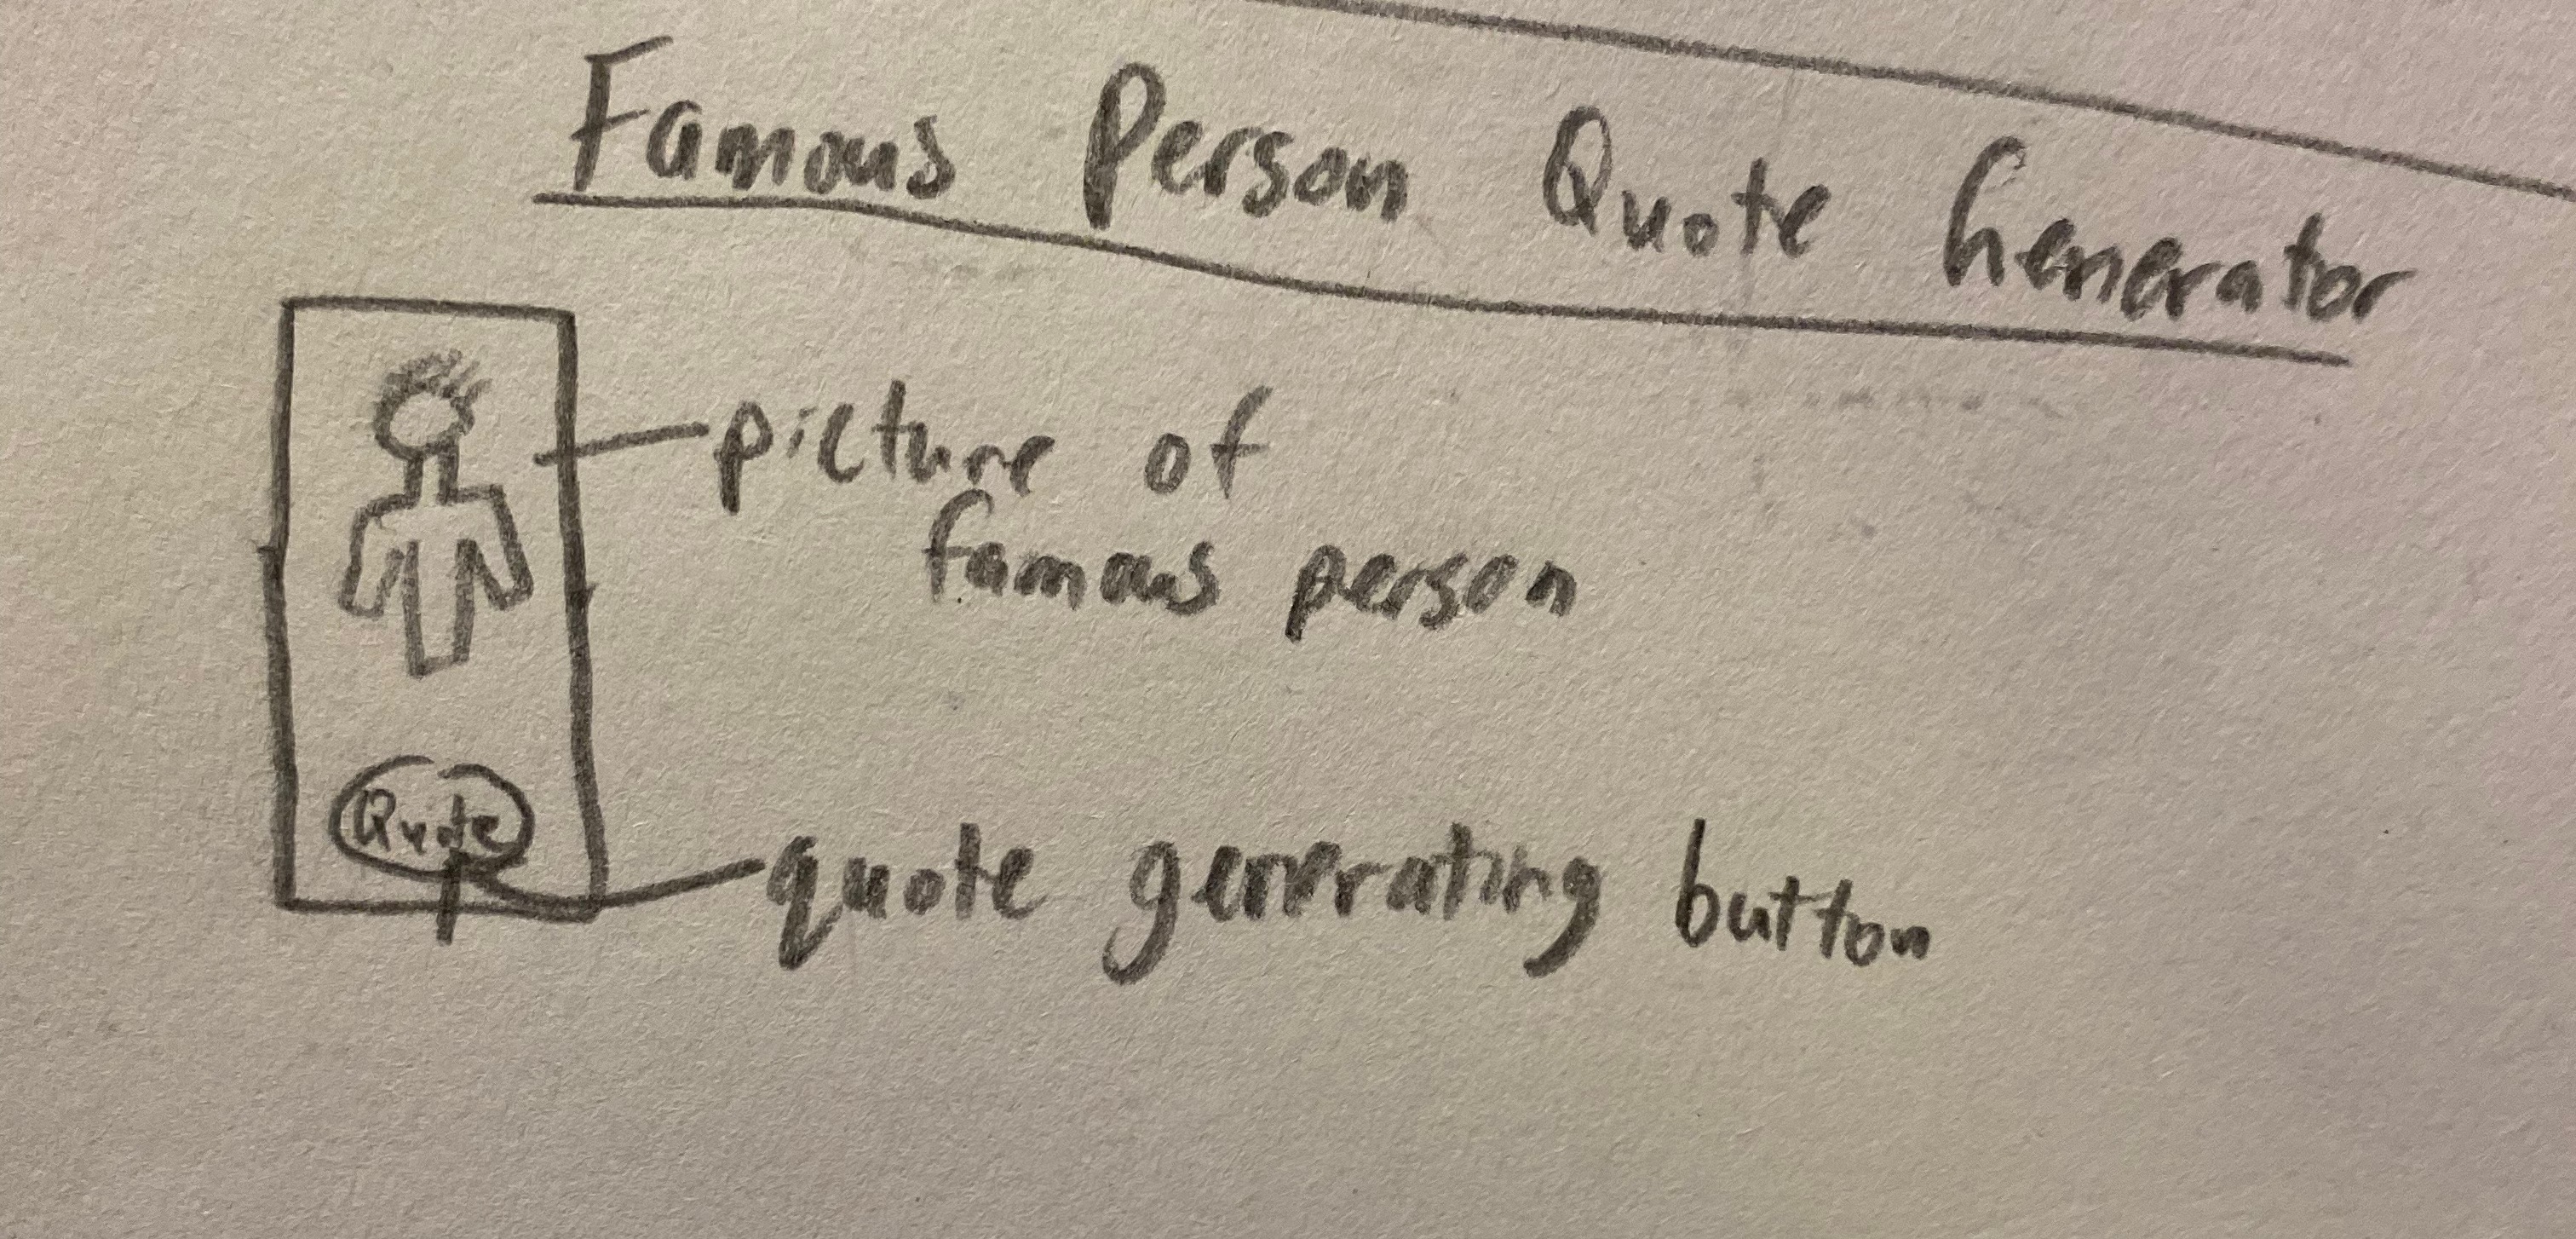 Famous Person Quote Generator
picture of
famous person
Quote
quote generating button